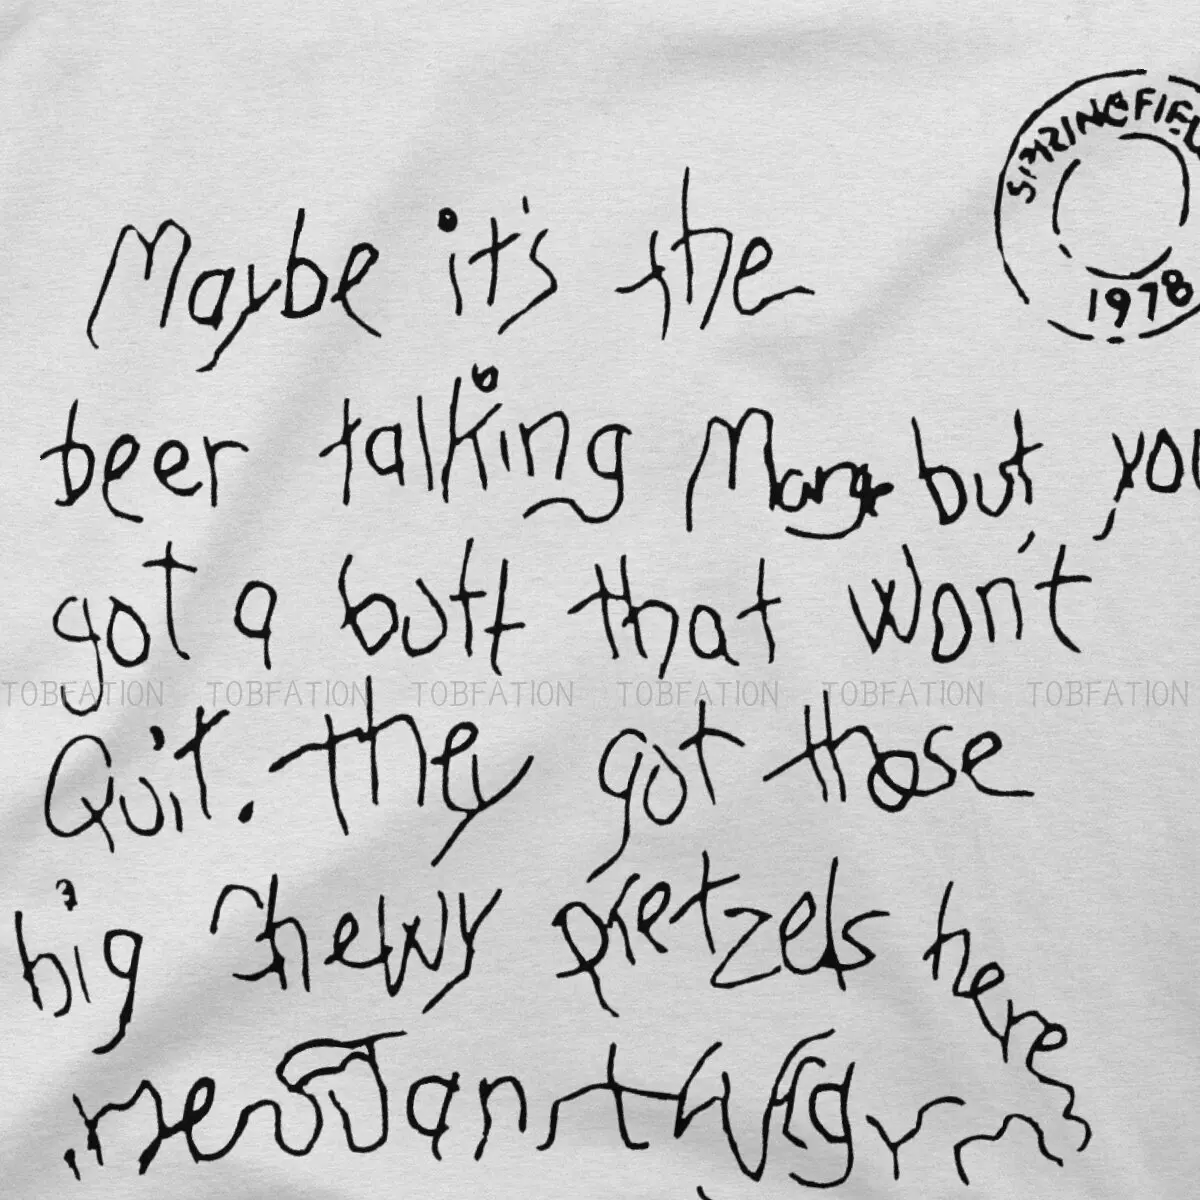 SPRINGFIEL
1978
Maybe it's the
beer talking Marge but, you
got a butt that won't
TOBFATION TOBFATION TOBFATION TOBFATION TOBFATION TOBFATION
Quit. They got those
big chewy pretzels here